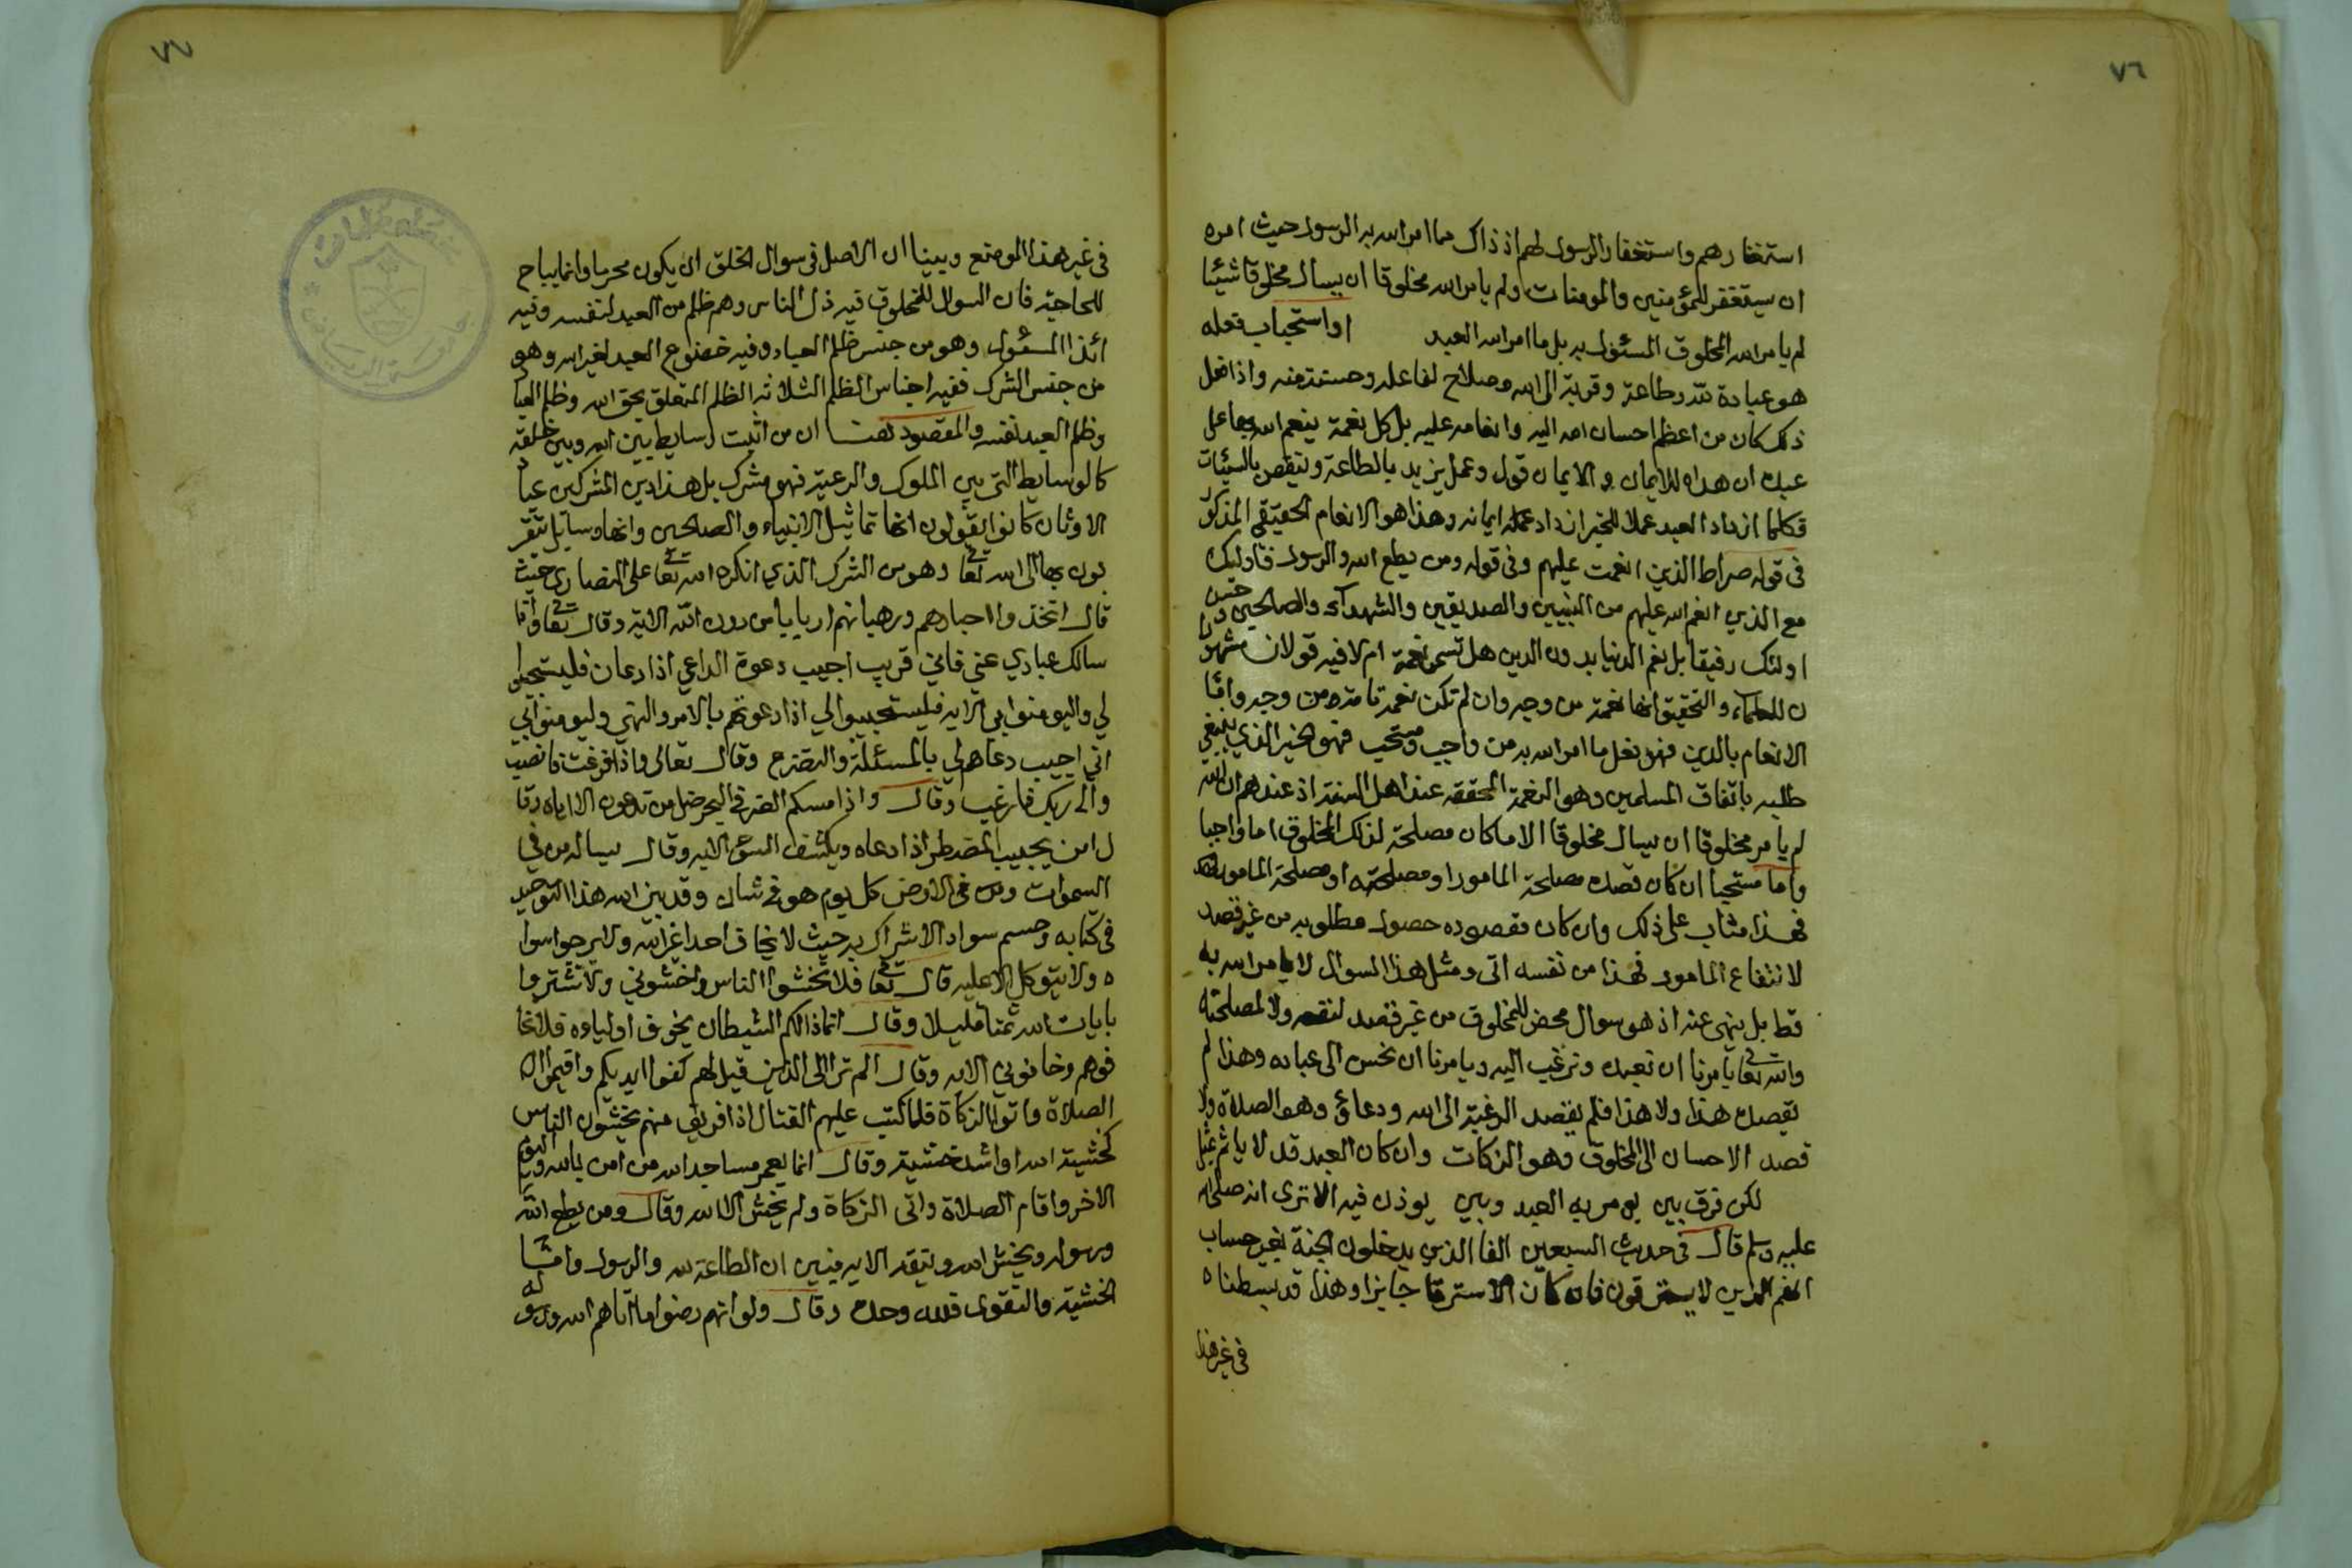 ٧٦
استغفارهم واستغفار الرسول لهم اذ ذاك مما امر الله به الرسول حيث امره
ان يستغفر للمؤمنين والمومنات ولم يامر الله مخلوقا ان يسال مخلوقا شيئا
لم يامر الله المخلوق المسئول به بل ما امر الله العبد او استحباب فعله
هو عبادة لله وطاعة وقربة الى الله وصلاح لفاعله وحسنة منه واذا فعل
ذلك كان من اعظم احسان الله اليه وانعامه عليه بل كل نعمة ينعم الله بها على
عبده ان هداه للايمان والايمان قول وعمل يزيد بالطاعة وينقص بالسيئات
فكلما ازداد العبد عملا للخير ازداد ايمانه وهذا هو الانعام الحقيقي المذكور
في قوله صراط الذين انعمت عليهم وفي قوله ومن يطع الله والرسول فاوليك
مع الذي انعم الله عليهم من النبيين والصديقين والشهداء والصالحين وحسن
اولئك رفيقا بل نعم الدنيا بدون الدين هل تسمى نعمة ام لا فيه قولان مشهورا
ن للعلماء والتحقيق انها نعمة من وجه وان لم تكن نعمة تامة من وجه واما
الانعام بالدين فهو فعل ما امر الله به من واجب ومستحب فهو الخير الذي ينبغي
طلبه باتفاق المسلمين وهو النعمة المحققه عند اهل السنة اذ عندهم ان الله
لم يامر مخلوقا ان يسال مخلوقا الا ما كان مصلحة لذلك المخلوق اما واجبا
واما مستحبا ان كان قصده مصلحة المامور او مصلحته او مصلحة المامور
فهذا مثاب على ذلك وان كان مقصوده حصول مطلوبه من غير قصد
لانتفاع المامور فهذا من نفسه اتى ومثل هذا السوال لا يامر الله به
قط بل ينهى عنه اذ هو سوال محض للمخلوق من غير قصد لنفعه ولا لمصلحته
والله تعا يامرنا ان نعبده ونرغب اليه ويامرنا ان نحسن الى عباده وهذا لم
يقصد هذا ولا هذا فلم يقصد الرغبة الى الله ودعائ وهو الصلاة ولا
قصد الاحسان الى المخلوق وهو الزكات وان كان العبد قد لا ياثم بمثل
لكن فرق بين يومر به العبد وبين يوذن فيه الا ترى انه صلى الله
عليه وسلم قال في حديث السبعين الفا الذين يدخلون الجنة بغير حساب
انهم الذين لا يسترقون فان كان الاسترقا جايزا وهذا قد بسطناه
في غير هذا
٧٧
في غير هذا الموضع وبينا ان الاصل في سوال الخلق ان يكون محرما وانما يباح
للحاجة فان السوال للمخلوق فيه ذل الناس وهم ظلم من العبد لنفسه وفيه
ائذا المسئول وهو من جنس ظلم العباد وفيه خضوع العبد لغير الله وهو
من جنس الشرك ففيه اجناس الظلم الثلاثه الظلم المتعلق بحق الله وظلم العبا
وظلم العبد نفسه والمقصود هنا ان من اثبت وسايط بين الله وبين خلقه
كالوسايط التي بين الملوك والرعية فهو مشرك بل هذا دين المشركين عبا
الاوثان كانوا يقولون انها تماثيل الانبياء والصالحين وانها وسايل يتقر
بون بها الى الله تعا وهو من الشرك الذي انكره الله تعا على النصارى حيث
قال اتخذوا احبارهم ورهبانهم اربابا من دون الله الاية وقال تعا واذا
سالك عبادي عني فاني قريب اجيب دعوة الداعي اذا دعان فليستجيبوا
لي واليومنوا بي الايه فليستجيبوا لي اذا دعوتهم بالامر والنهي وليومنوا بي
اني اجيب دعاهم لي بالمسئلة والتضرع وقال تعالى واذا فرغت فانصب
والى ربك فارغب وقال واذا مسكم الضر في البحر ضل من تدعون الا اياه وقا
ل امن يجيب المضطر اذا دعاه ويكشف السوء الايه وقال يساله من في
السموات ومن في الارض كل يوم هو في شان وقد بين الله هذا التوحيد
في كتابه وحسم سواد الاشراك به حيث لا يخاف احدا غير الله ولا يرجوا سوا
ه ولا يتوكل الا عليه قال تعا فلا تخشوا الناس واخشوني ولا تشتروا
بايات الله ثمنا قليلا وقال انما ذالكم الشيطان يخوف اولياوه فلا تخا
فوهم وخافوني الايه وقال الم تر الى الذين قيل لهم كفوا ايديكم واقيموا
الصلاة واتوا الزكاة فلما كتب عليهم القتال اذا فريق منهم يخشون الناس
كخشية الله او اشد خشية وقال انما يعمر مساجد الله من امن بالله واليوم
الاخر واقام الصلاة واتى الزكاة ولم يخش الا الله وقال ومن يطع الله
ورسوله ويخش الله ويتقه الايه فبين ان الطاعة لله والرسول واما
الخشية والتقوى فلله وحده وقال ولو انهم رضوا ما اتاهم الله ورسوله